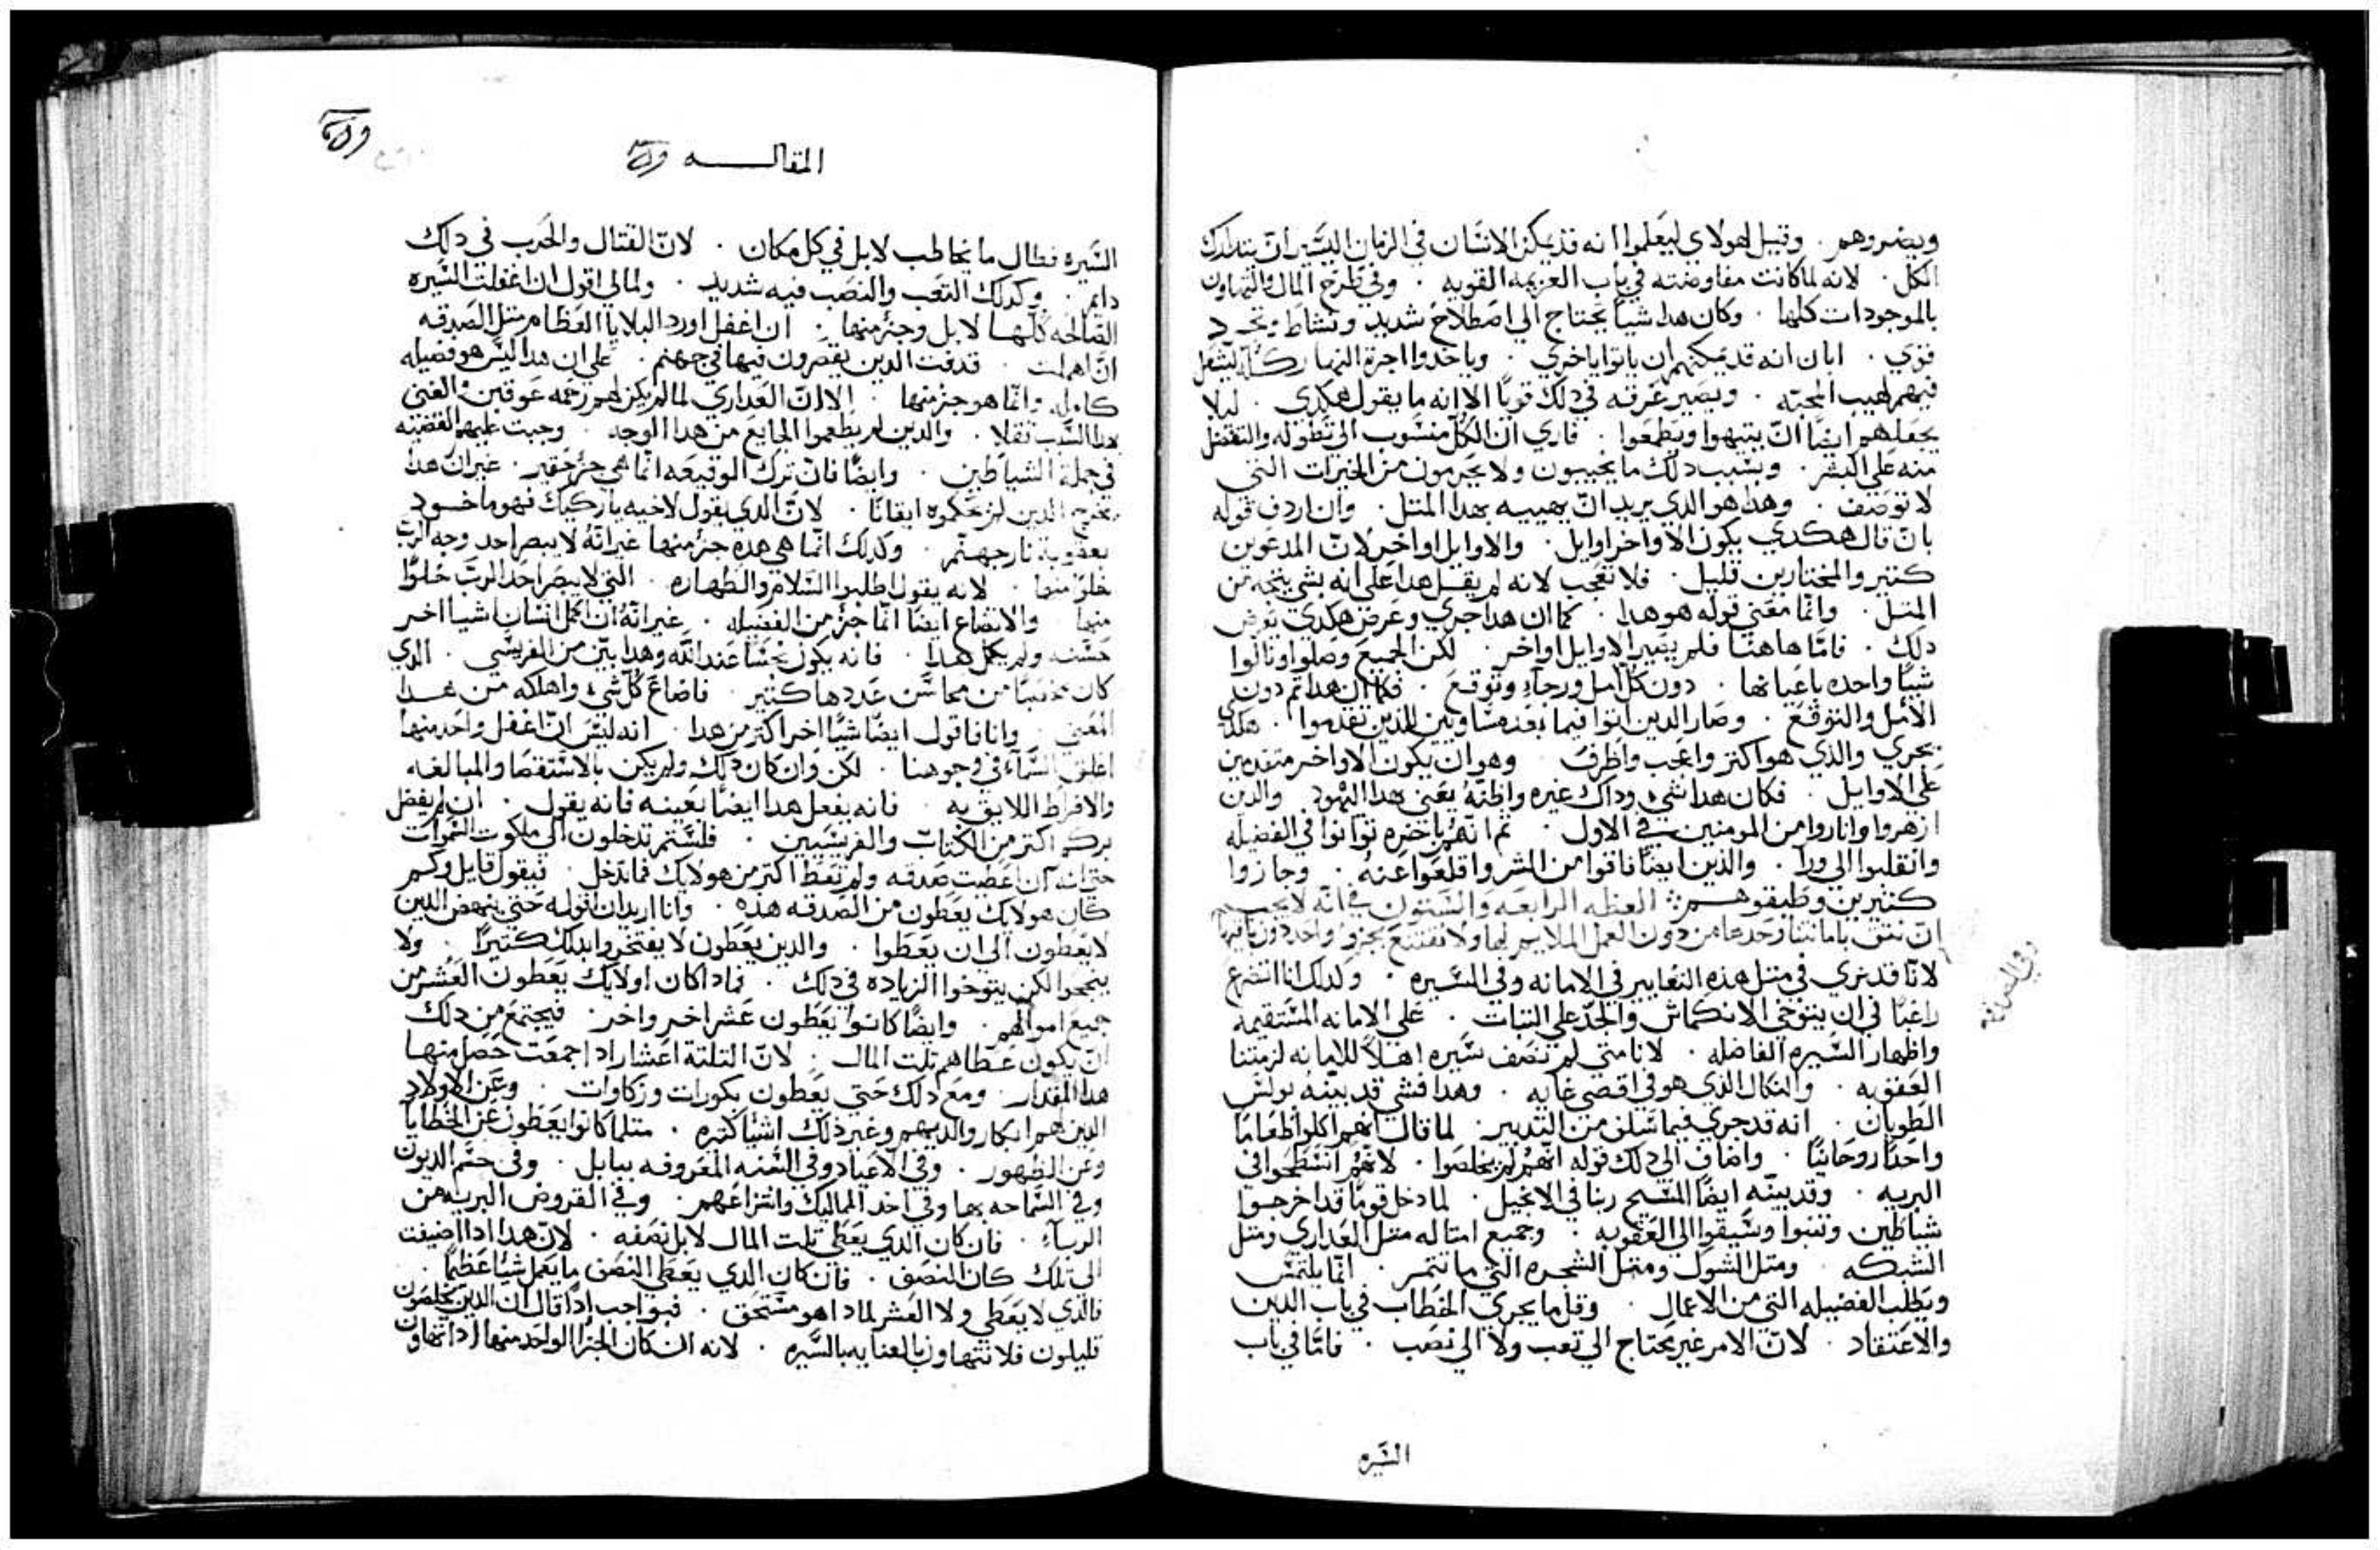 ويضروهم . وقيل لهولاي ليعلموا انه قد يمكن الانسان في الزمان اليسير ان يتدارك
الكل . لانه لما كانت مفاوضته في باب العزيمه القويه . وفي طرح المال والتهاون
بالموجودات كلها . وكان هدا شيا يحتاج الي اصطلاح شديد ونشاط
قوي . ابان انه قد يمكنهم ان ياتوا باخري . وياخدوا اجرة النهار كله ليشعل
فيهم لهيب المحبه . ويصير عزمه في دلك قويًا الا انه ما يقول هكدي . ليلا
يجعلهم ايضا ان يتيهوا ويطمعوا . فاري ان الكل منسوب الي تطوله والتفضل
منه علي البشر . وبسبب دلك ما يخيبون ولا يحرمون من الخيرات التي
لا توصف . وهدا هو الدي يريد ان يهييه بهدا المتل . وان اردف قوله
بان قال هكدي يكون الاواخر اوايل . والاوايل اواخر لان المدعوين
كتير والمختارين قليل . فلا تعجب لانه لم يقل هدا علي انه بشي ينتجه من
المتل . وانما معني قوله هو هدا . كما ان هدا جري وعرض هكدي يعرض
دلك . فاما هاهنا فلم يصير الاوايل اواخر . لكن الجميع وصلوا ونالوا
شيا واحده باعيانها . دون كل امل ورجآء وتوقع . فكما ان هدا تم دون
الامل والتوقع . وصار الدين اتوا فيما بعد مساويين للدين تقدموا . هكدا
يجري والذي هو اكتر واعجب واظرف وهو ان يكون الاواخر متقدمين
علي الاوايل . فكان هدا شي وداك غيره واظنه يعني هدا اليهود والدين
ازهروا واناروا من المومنين في الاول . تم انهم باخره توانوا في الفضيله
وانقلبوا الي ورا . والذين ايضا فاقوا من الشر واقلعوا عنه . وجازوا
كتيرين وطبقوهم العظه الرابعه والستون في انه لا يجب
ان نتق بامانتنا وحدها من دون العمل الملايم لها ولا نقتنع بجزو واحد دون باقيها
لانا قد نري في متل هذه التغايير في الامانه وفي السيره . ولدلك انا اتضرع
راغبًا في ان يتوخي الانكماش والجد علي التبات . علي الامانه المستقيمه
واظهار السيره الفاضله . لانا متي لم نضف سيره اهلاً للامانه لزمتنا
العقوبه . والنكال الذي هو في اقصي غايه . وهدا فشي قد بينه بولس
الطوبان . انه قد جري فيما سلف من التدبير . لما قال انهم اكلوا طعامًا
واحدًا روحانيًا . واضاف الي دلك قوله انهم لم يخلصوا . لانهم انسطحوا في
البريه . وقد بينه ايضًا المسيح ربنا في الانجيل . لما دخل قومًا قد اخرجوا
شياطين وتنبوا وسيقوا الي العقوبه . وجميع امتاله متل العداري ومتل
الشبكه . ومتل الشوك ومتل الشجره التي ما تتمر . انما يلتمس
ويطلب الفضيله التي من الاعمال . وقل ما يجري الخطاب في باب الدين
والاعتقاد . لان الامر غير يحتاج الي تعب ولا الي نصب . فاما في باب
السيره
المقاله
السيره فطال ما يخاطب لا بل في كل مكان . لان القتال والحرب في دلك
دايم . وكدلك التعب والنصب فيه شديد . ولما لي اقول ان اغفلت السيره
الصالحه كلها لا بل وجزء منها . ان اغفل اورد البلايا العظام متل الصدقه
ان اهملت . قدفت الدين يقصرون فيها في جهنم . علي ان هدا ليس هو فضيله
كامله وانما هو جزء منها . الا ان العداري لما لم يكن لهم رحمه عوقبن والغني
لهدا السبب تقلا . والدين لم يطعموا الجايع من هدا الوجه . وجبت عليهم القضيه
في جملة الشياطين . وايضًا فان ترك الوقيعه انما هي جزء حقير . غير ان هدا
يخرج الدين لم يحكموه ايقانًا . لان الدي يقول لاخيه يا ركيك فهو ماخود
بعقوبة نار جهنم . وكدلك انما هي هذه جزء منها غير انه لا يبصر احد وجه الرب
خلوًا منها . لانه يقول اطلبوا السلام والطهاره . التي لا يبصر احد الرب خلوًا
منها . والاتضاع ايضا انما جزء من الفضيله . غير انه ان كمل انسان اشيا اخر
حسنه ولم يكمل هدا . فانه يكون نجسًا عند الله وهدا بين من الفريسي . الدي
كان مخصبًا من محاسن عددها كتير . فاضاع كل شيء واهلكه من هدا
المعني . وانا فاقول ايضًا شيًا اخر اكتر من هدا . انه ليس ان اغفل واحد منها
اغلق السمآء في وجوهنا . لكن وان كان دلك ولم يكن بالاستقصا والمبالغه
والافراط اللايق به . فانه يفعل هدا ايضًا بعينه فانه يقول . ان لم يفضل
بركم اكتر من الكتاب والفريسيين . فلستم تدخلون الي ملكوت السموات
حتي انه ان اعطيت صدقه ولم تعط اكتر من هولايك فما تدخل . فيقول قايل وكم
كان هولايك يعطون من الصدقه هذه . وانا اريد ان اقوله حتي ينهض الدين
لا يعطون الي ان يعطوا . والدين يعطون لا يفتخروا بدلك كتيرًا . ولا
يبجحوا لكن يتوخوا الزياده في دلك . فمادا كان اولايك يعطون العشر من
جميع اموالهم . وايضًا كانوا يعطون عشر اخر واخر . فيجتمع من دلك
ان يكون عطاهم تلت المال . لان التلتة اعشار ادا جمعت حصل منها
هدا المقدار . ومع دلك حتي يعطون بكورات وزكاوات . وعن الاولاد
الدين هم ابكار والديهم وغير ذلك اشيا كتيره . متلما كانوا يعطون عن الخطايا
وعن الطهور . وفي الاعياد وفي السنه المعروفه ببابل . وفي حسم الديون
وفي السماحه بها وفي اخد المماليك وانتزاعهم . وفي القروض البريه من
الربآء . فان كان الدي يعطي تلت المال لا بل نصفه . لان هدا ادا اضيفت
الي تلك كان النصف . فان كان الدي يعطي النصف ما يعمل شيًا عظيمًا .
فالذي لا يعطي ولا العشر لمادا هو مستحق . فبواجب ادًا قال ان الدين يخلصون
قليلون فلا نتهاون بالعنايه بالسيره . لانه ان كان الجزا الواحد منها ادا تهاون